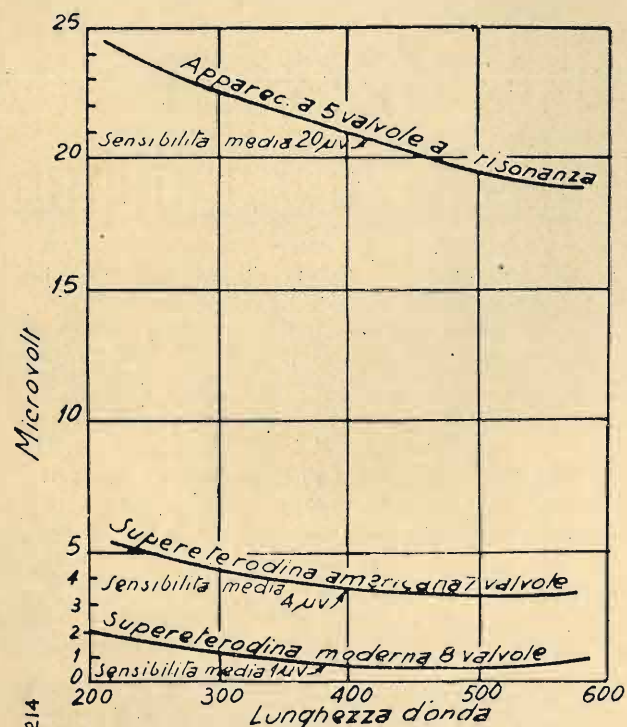 25
20
15
10
5
4
3
2
1
0
Microvolt
Apparec. a 5 valvole a risonanza
Sensibilita media 20 µv
Supereterodina americana 7 valvole
Sensibilita media 4 µv
Supereterodina moderna 8 valvole
Sensibilita media 1 µv
200 300 400 500 600
Lunghezza d'onda
214